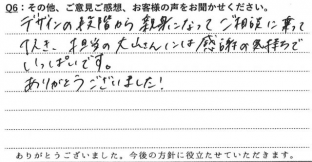 Q6：その他、ご意見ご感想、お客様の声をお聞かせください。
デザインの段階から親身になってご相談に乗って
頂き、担当の大山さんには感謝の気持ちで
いっぱいです。
ありがとうございました！
ありがとうございました。今後の方針に役立たせていただきます。